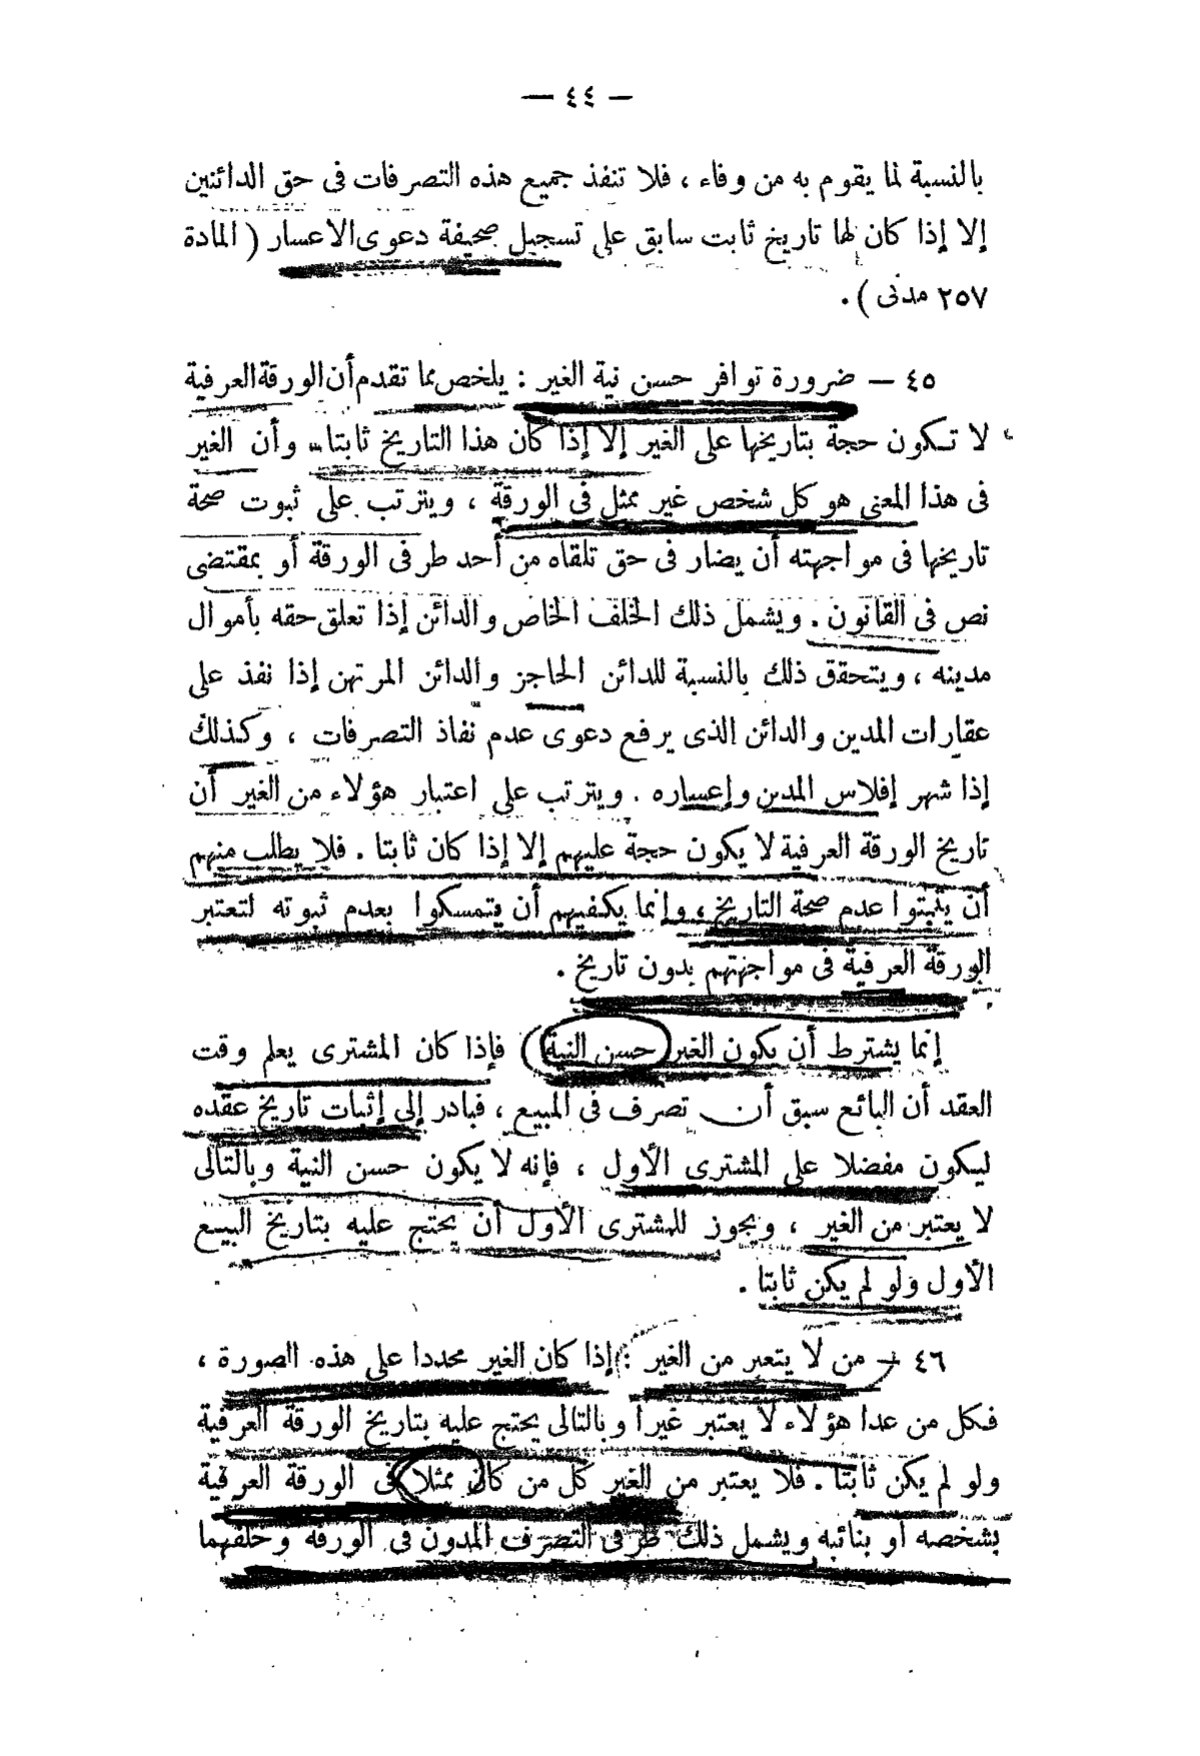 — ٤٤ —
بالنسبة لما يقوم به من وفاء ، فلا تنفذ جميع هذه التصرفات فى حق الدائنين
إلا إذا كان لها تاريخ ثابت سابق على تسجيل صحيفة دعوى الاعسار ( المادة
٢٥٧ مدنى ) .
٤٥ — ضرورة توافر حسن نية الغير : يلخص مما تقدم أن الورقة العرفية
لا تكون حجة بتاريخها على الغير إلا إذا كان هذا التاريخ ثابتا ، وأن الغير
فى هذا المعنى هو كل شخص غير ممثل فى الورقة ، ويترتب على ثبوت صحة
تاريخها فى مواجهته أن يضار فى حق تلقاه من أحد طرفى الورقة أو بمقتضى
نص فى القانون . ويشمل ذلك الخلف الخاص والدائن إذا تعلق حقه بأموال
مدينه ، ويتحقق ذلك بالنسبة للدائن الحاجز والدائن المرتهن إذا نفذ على
عقارات المدين والدائن الذى يرفع دعوى عدم نفاذ التصرفات ، وكذلك
إذا شهر إفلاس المدين وإعساره . ويترتب على اعتبار هؤلاء من الغير أن
تاريخ الورقة العرفية لا يكون حجة عليهم إلا إذا كان ثابتا . فلا يطلب منهم
أن يثبتوا عدم صحة التاريخ ، وإنما يكفيهم أن يتمسكوا بعدم ثبوته لتعتبر
الورقة العرفية فى مواجهتهم بدون تاريخ .
إنما يشترط أن يكون الغير ( حسن النية ) فإذا كان المشترى يعلم وقت
العقد أن البائع سبق أن تصرف فى المبيع ، فبادر إلى إثبات تاريخ عقده
ليكون مفضلا على المشترى الأول ، فإنه لا يكون حسن النية وبالتالى
لا يعتبر من الغير ، ويجوز للمشترى الأول أن يحتج عليه بتاريخ البيع
الأول ولو لم يكن ثابتا .
٤٦ — من لا يتعبر من الغير : إذا كان الغير محددا على هذه الصورة ،
فكل من عدا هؤلاء لا يعتبر غيرا وبالتالى يحتج عليه بتاريخ الورقة العرفية
ولو لم يكن ثابتا . فلا يعتبر من الغير كل من كان ممثلا فى الورقة العرفية
بشخصه أو بنائبه ويشمل ذلك طرفى التصرف المدون فى الورقة وخلفهما